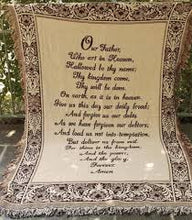 Our Father,
Who art in Heaven,
Hallowed be thy name;
Thy kingdom come,
Thy will be done,
On earth, as it is in heaven.
Give us this day our daily bread;
And forgive us our debts
As we have forgiven our debtors;
And lead us not into temptation,
But deliver us from evil
For thine is the kingdom,
And the power,
And the glory,
Forever.
Amen